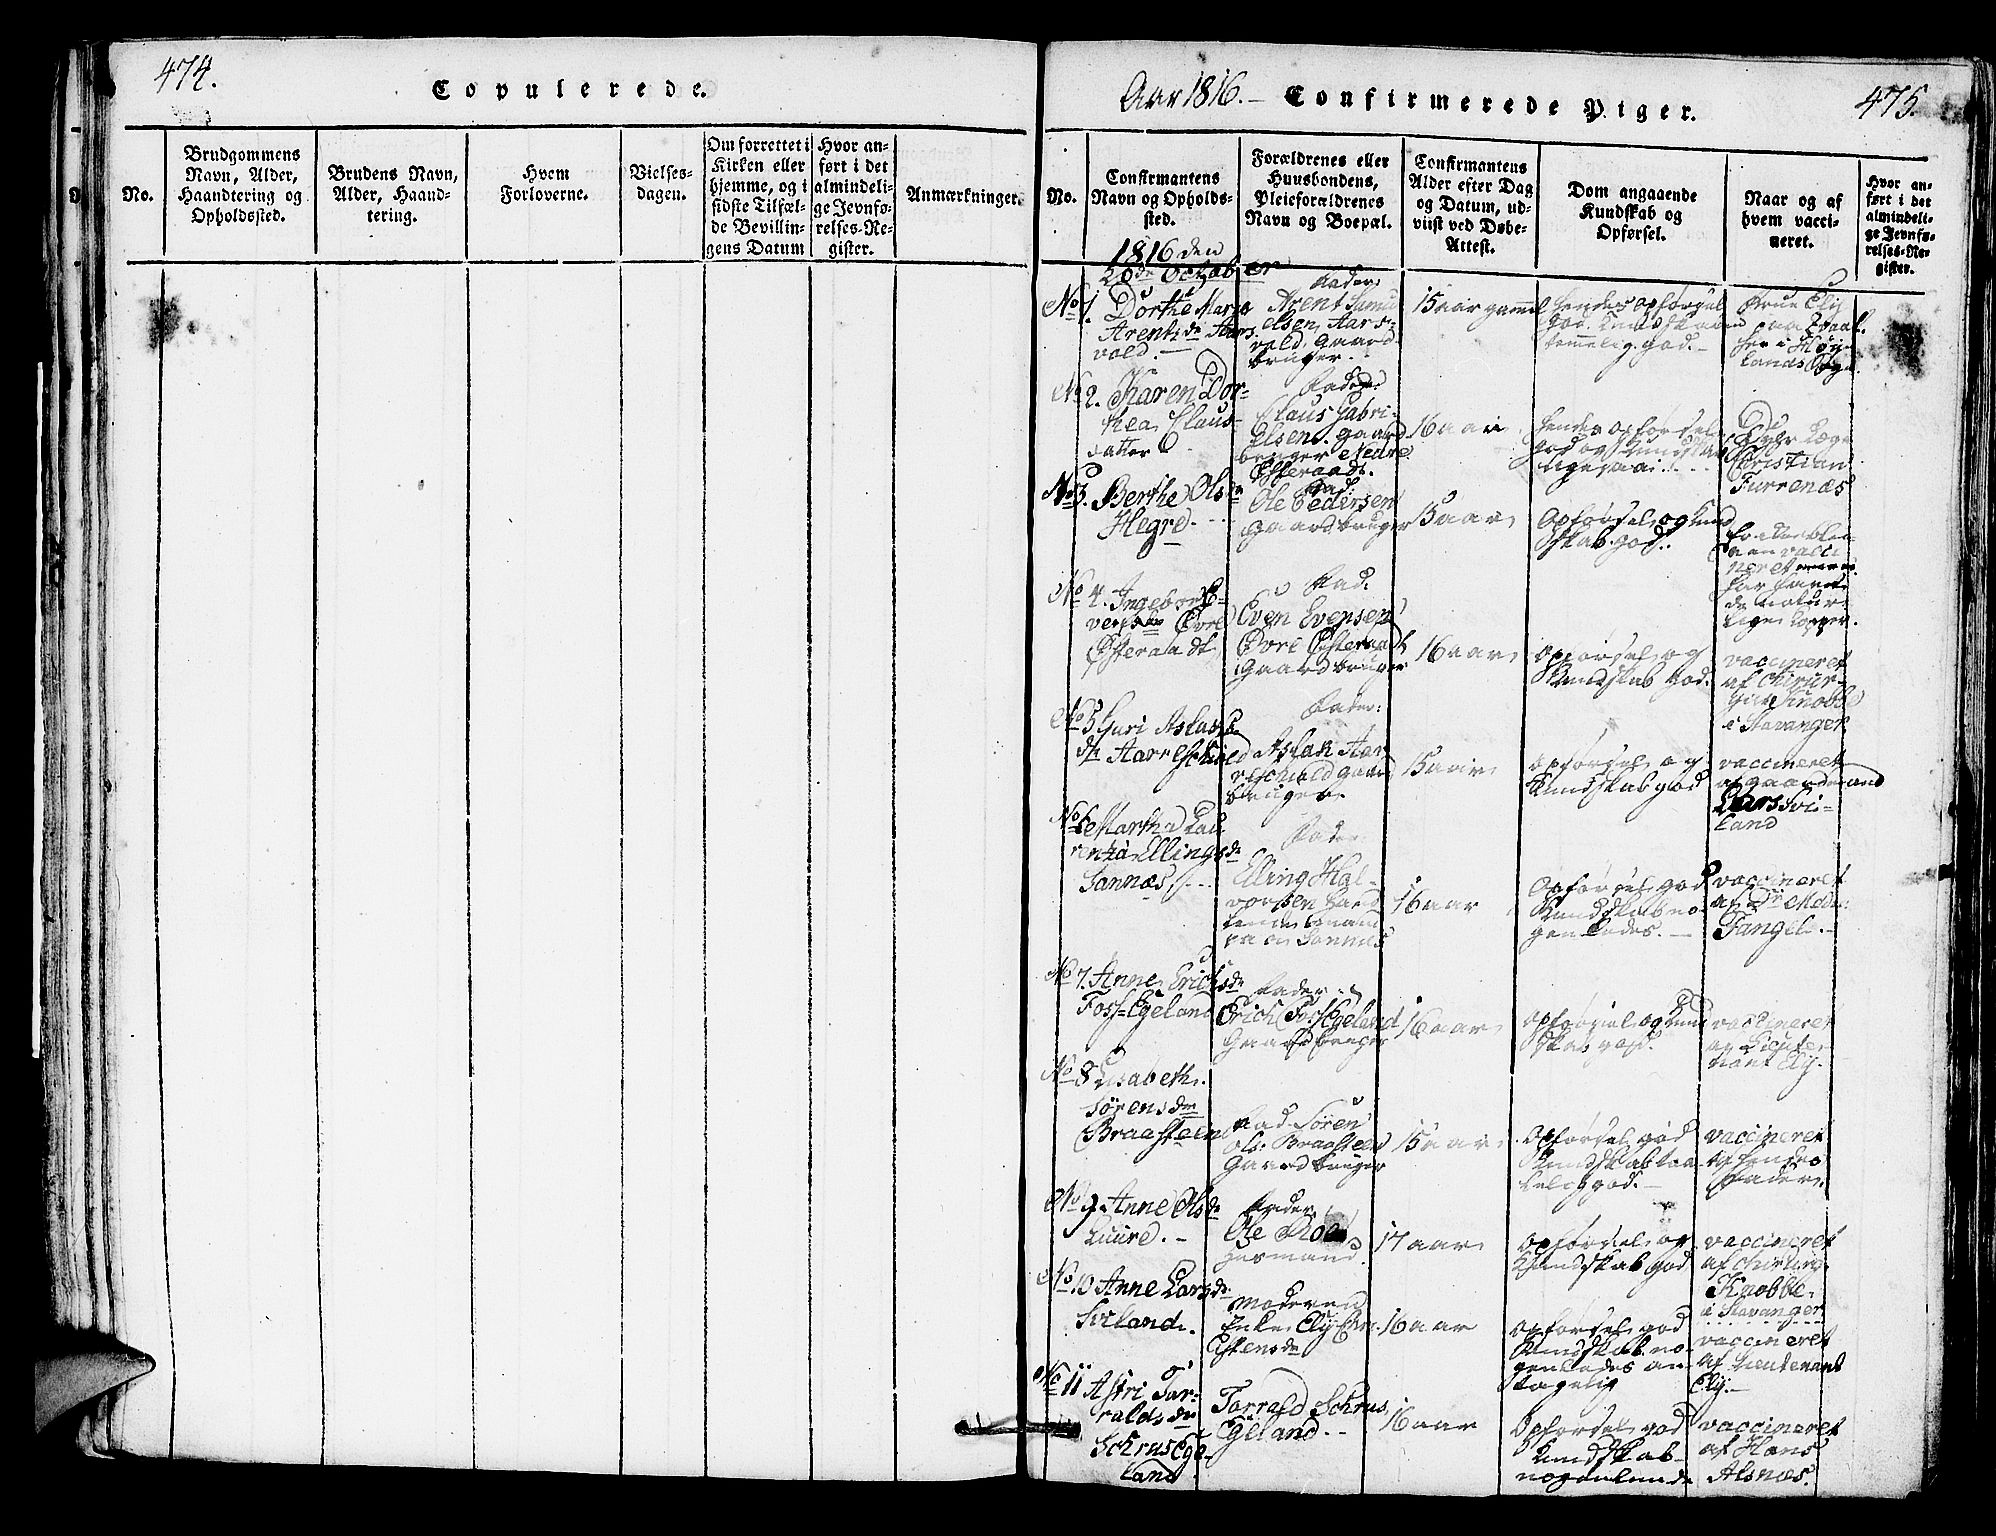 474.
Copulerede.
No.
Brudgommens
Navn, Alder,
Haandtering og
Opholdssted.
Brudens Navn,
Alder, Haand-
tering.
Hvem
Forloverne.
Vielses-
dagen.
Om forrettet i
Kirken eller
hjemme, og i
sidste Tilfæl-
de Bevillin-
gens Datum
Hvor an-
ført i det
almindeli-
ge Jevnfø-
relses-Re-
gister.
Anmærkninger.
Aar 1816. – Confirmerede Piger.
475.
No.
Confirmantens
Navn og Opholds-
sted.
Forældrenes eller
Huusbondens,
Pleieforældrenes
Navn og Boepæl.
Confirmantens
Alder efter Dag
og Datum, ud-
viist ved Døbe-
Attest.
Dom angaaende
Kundskab og
Opførsel.
Naar og af
hvem vacci-
neret.
Hvor an-
ført i det
almindeli-
ge Jevnfø-
relses-Re-
gister.
1816 den
20de October
No 1. Dorthe Maria
Arentsde Aars
vold. –
Fader
Arent Samu
elsen, Aars-
vold, Gaard
bruger.
15 aar gammel
hendes opførsel
god. Kundskaben
temmelig god. –
Frue Ely
paa
i Høy-
lands
No 2. Karen Dor-
thea Claus-
datter
Fader
Claus Gabri-
elsen. gaard
bruger Nedre
Østeraadt.
16 aar
hendes opførsel
god og Kundskab
ligesaa.
Christian
Furrenæs
No 3. Berthe Olsde
Hegre. - -
Fad:
Ole Pedersen
Gaardbruger
15 aar
Opførsel og Kund
skab god.
vacci
neret
har
de natur
lige Kopper.
No 4. Ingebor E-
versde Øvre
Østeraadt
Fad.
Even Evensen
Øvre Østeraadt
Gaardbruger
16 aar
opførsel og
Kundskab god.
vaccineret
af Chirur-
gus Knobbe
i Stavanger
No 5 Guri Aslags
de Aarreschiold
Fader:
Aslak Aar-
reschiold gaard
bruger.
15 aar
opførsel og
Kundskab god
vaccineret
af gaardmand
Lars Svi-
land
No 6 Martha Lau
rentza Ellingsde
Sannæs. - -
Fader
Elling Hal-
vorssen
paa Sannæs
16 aar
Opførsel god
Kundskab no-
genledes. –
vaccineret
af Sr
Fangel. –
No 7. Anne Erichsde
Foss-Egeland
Fader
Erich Foss-Egeland
Gaardbruger
16 aar
opførsel og Kund
skab god.
vaccineret
af Lieute-
nant Ely.
No 8 Elisabeth
Sörensde
Braasteen
Fad Sören
Ols: Braasteen
Gaardbruger
15 aar
Opførsel god
Kundskab taa-
lelig god. –
vaccineret
af hendes
Fader.
No 9. Anne Olsde
Luure. –
Fader
Ole
Huusmand.
17 aar
opførsel og
Kundskab god
vaccineret
af Chirurg.
Knobbe
i Stavanger
No 10 Anne Larsde
Sviland.
Moderen
Enke Elj Chri-
stensde
16 aar
opførsel god
Kundskab no-
genledes an-
tagelig
vaccineret
af Lieutenant
Ely. –
No 11 Astri Tor-
raldsde
Schrus Ege-
land
Torrald Schrus
Egeland. - -
16 aar
Opførsel god
Kundskab
nogenlunde
vaccineret
af Hans
Alsnæs.